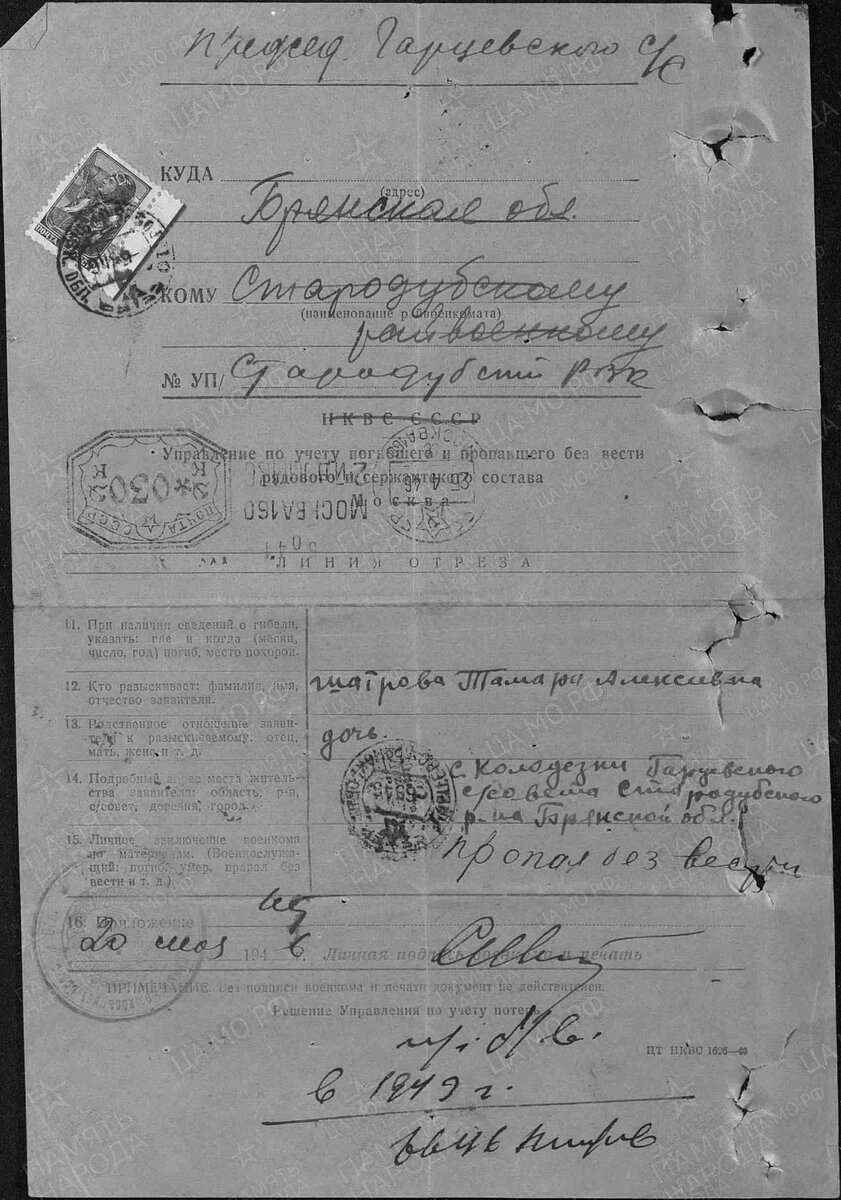 Председ. Гарцевского с/с
КУДА
(адрес)
Брянская обл.
КОМУ Стародубскому
(наименование райвоенкомата)
райвоенкому
№ УП/ Стародубский РВК
НКВС СССР
Управление по учету погибшего и пропавшего без вести
рядового и сержантского состава
Москва
ПОЧТА СССР
*030
МОСКВА 160
ЛИНИЯ ОТРЕЗА
11. При наличии сведений о гибели,
указать: где и когда (месяц,
число, год) погиб, место похорон.
12. Кто разыскивает: фамилия, имя,
отчество заявителя.
шатрова Тамара Алексивна
13. Родственное отношение заяви-
теля к разыскиваемому: отец,
мать, жена и т. д.
дочь.
14. Подробный адрес места житель-
ства заявителя: область, р-н,
с/совет, деревня, город.
с Колодезки Гарцевского
с/совета Стародубского
р-на Брянской обл.
15. Личное заключение военкома
по материалам. (Военнослужа-
щий: погиб, умер, пропал без
вести и т. д.).
Пропал без вести
16. Приложение
20 мая 1946 г. Личная подпись военкома и печать
ПРИМЕЧАНИЕ. Без подписи военкома и печати документ не действителен.
Решение Управления по учету потерь
ЦТ НКВС 1626—40
в 1943 г.
ПАМЯТЬ НАРОДА
ЦАМО.РФ